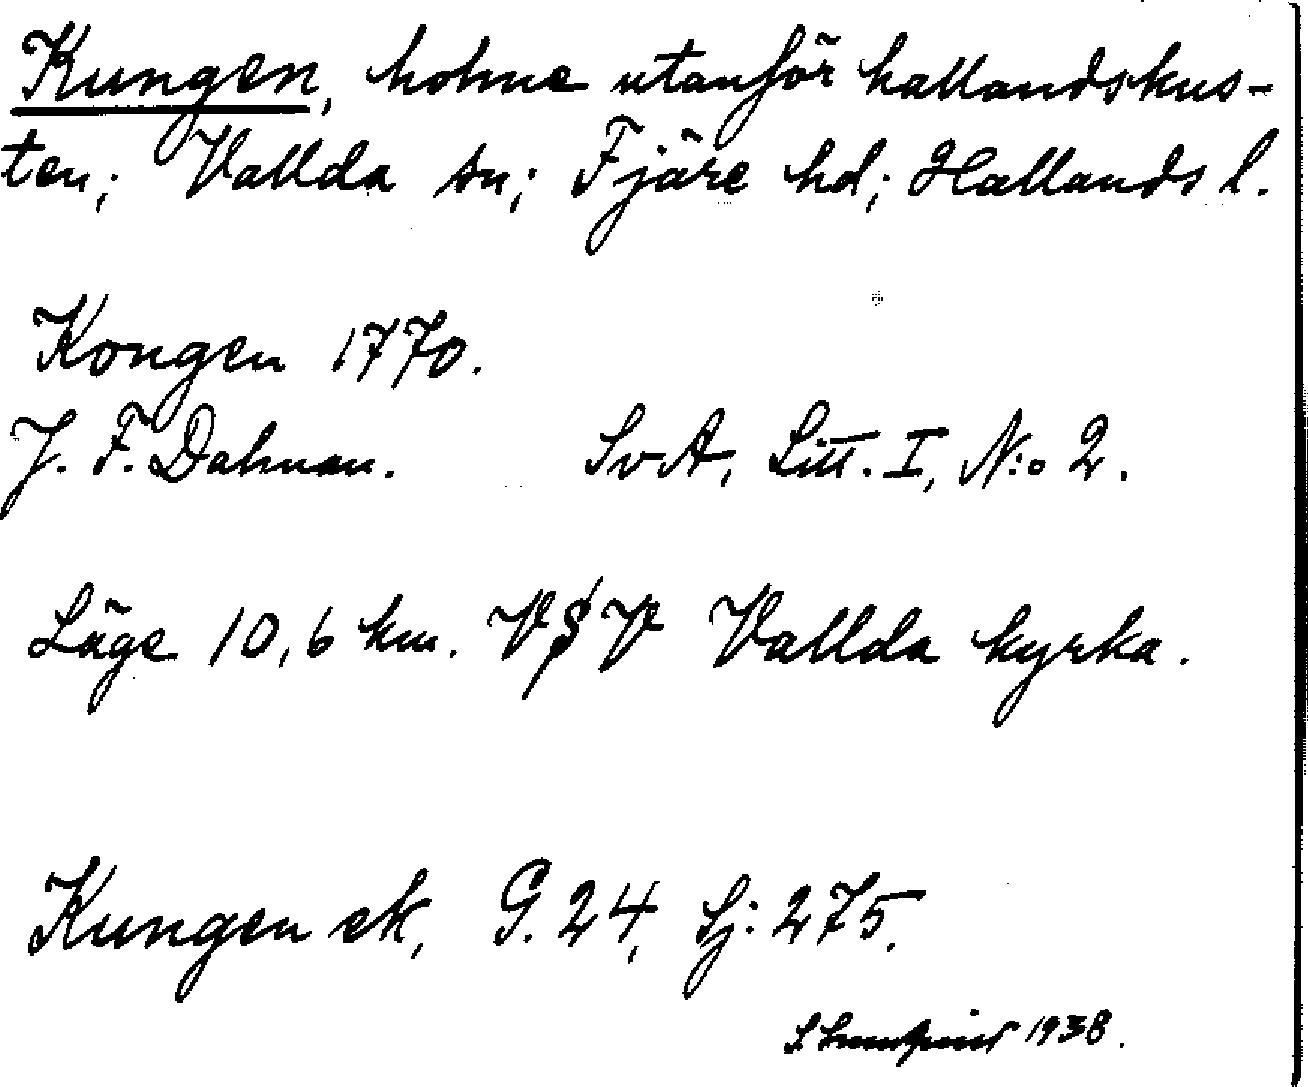 Kungen, holme utanför hallandskus-
ten; Vallda sn; Fjäre hd; Hallands l.
Kongen 1770.
J. F. Dalman. SvA, Litt. I, N:o 2.
Läge 10,6 km. VSV Vallda kyrka.
Kungen ek, G. 24, Sj: 275.
1938.